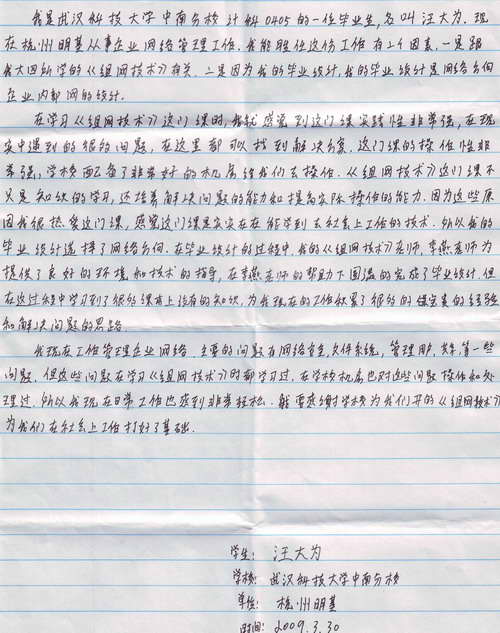 我是武汉科技大学中南分校计科0405的一位毕业生,名叫汪大为.现
在杭州明基从事企业网络管理工作,我能胜任这份工作有2个因素,一是跟
我大四所学的《组网技术》有关.二是因为我的毕业设计,我的毕业设计是网络方向
企业内部网的设计.
在学习《组网技术》这门课时,我就感觉到这门课实践性非常强,在现
实中遇到的很多的问题,在这里都可以找到解决方案,这门课的操作性非
常强,学校配备了非常好的机房给我们去操作.《组网技术》这门课不
只是知识的学习,还培养解决问题的能力和提高实际操作的能力.因为这些原
因我很热爱这门课,感觉这门课是实实在在能学到去社会上工作的技术.所以我的
毕业设计选择了网络方向.在毕业设计的过程中,我的《组网技术》老师,李燕老师为
提供了良好的环境和技术的指导,在李燕老师的帮助下圆满的完成了毕业设计.但
在这过程中学习到了很多课本上没有的知识,为我现在的工作积累了很多的宝贵的经验
和解决问题的思路.
我现在工作管理企业网络.主要的问题有网络安全,文件系统,管理用户,等一些
问题.但这些问题在学习《组网技术》时都学习过,在学校机房也对这些问题操作和处
理过.所以我现在日常工作也感到非常轻松.能要感谢学校为我们开的《组网技术》
为我们在社会上工作打好了基础.
学生: 汪大为
学校: 武汉科技大学中南分校
单位: 杭州明基
时间: 2009.3.30